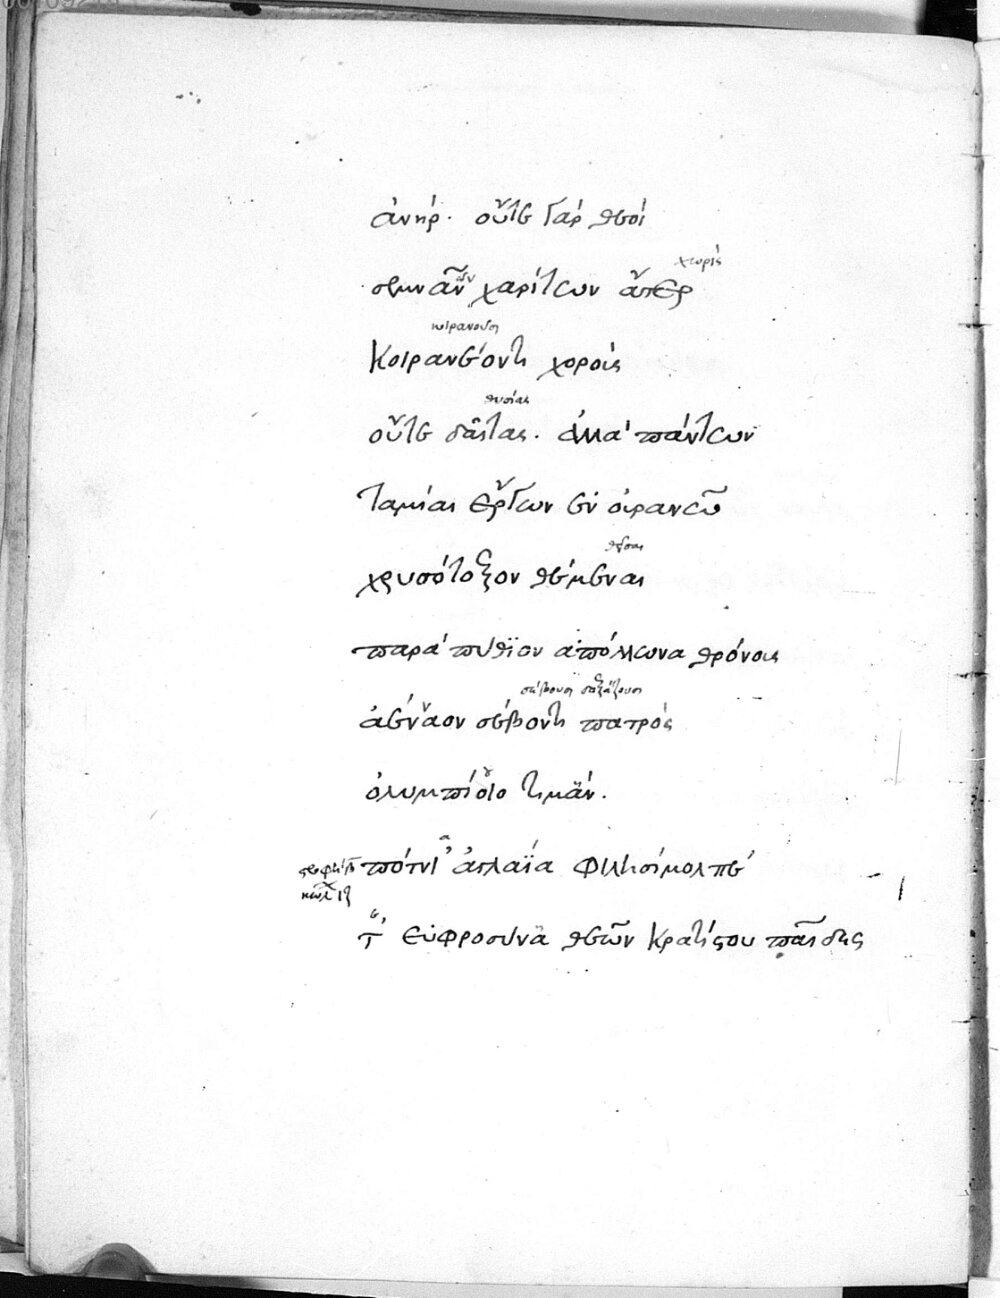 ἀνήρ. οὔτε γὰρ θεοὶ
χωρὶς
σεμνᾶν χαρίτων ἄτερ
κοιρανοῦσι
κοιρανέοντι χοροὺς
θυσίας
οὔτε δαῖτας. ἀλλὰ πάντων
ταμίαι ἔργων ἐν οὐρανῶ
θεῖσαι
χρυσότοξον θέμεναι
παρὰ πύθϊον ἀπόλλωνα θρόνους
σέβουσι δοξάζουσι
ἀέναον σέβοντι πατρὸς
ὀλυμπίοιο τιμάν.
πότνι' ἀγλαΐα φιλησίμολπέ
κώλ ιζ
τ' εὐφροσύνα θεῶν κρατίστου παῖδες